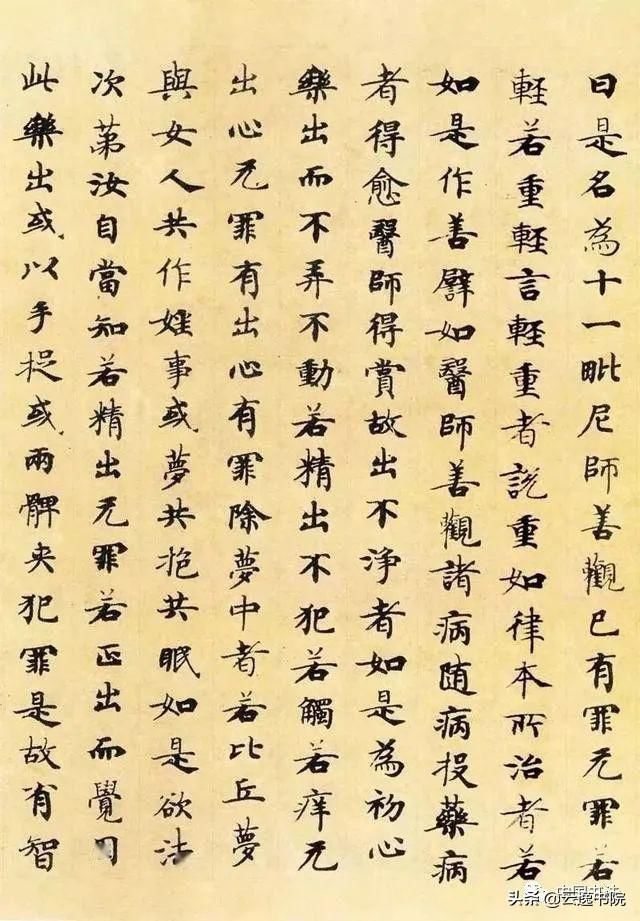 曰是名為十一毗尼師善觀已有罪无罪若
輕若重輕言輕重者說重如律本所治者若
如是作善譬如醫師善觀諸病随病投藥病
者得愈醫師得賞故出不淨者如是為初心
樂出而不弄不動若精出不犯若觸若痒无
出心无罪有出心有罪除夢中者若比丘夢
與女人共作婬事或夢共抱共眠如是欲法
次第汝自當知若精出无罪若正出而覺
此樂出或以手捉或兩髀夾犯罪是故有智
中国书法
头条@云逸书院